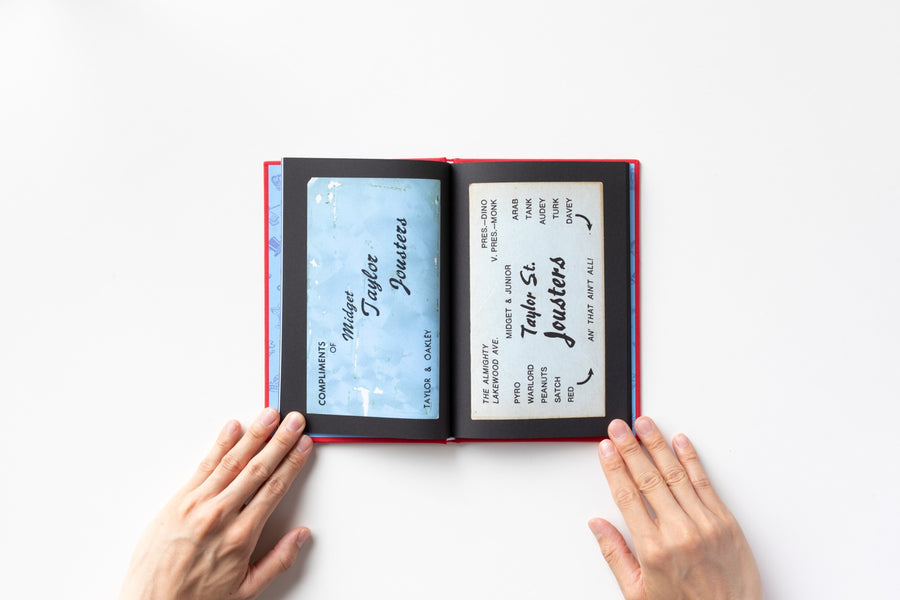 COMPLIMENTS
OF
Midget
Taylor
Jousters
TAYLOR & OAKLEY
THE ALMIGHTY
LAKEWOOD AVE.
PRES.—DINO
V. PRES.—MONK
MIDGET & JUNIOR
Taylor St.
Jousters
PYRO
WARLORD
PEANUTS
SATCH
RED
ARAB
TANK
AUDEY
TURK
DAVEY
AN' THAT AIN'T ALL!